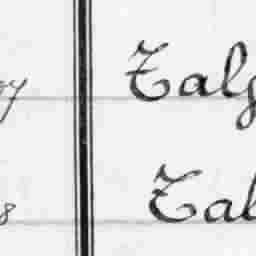 97 Talg
8 Tal